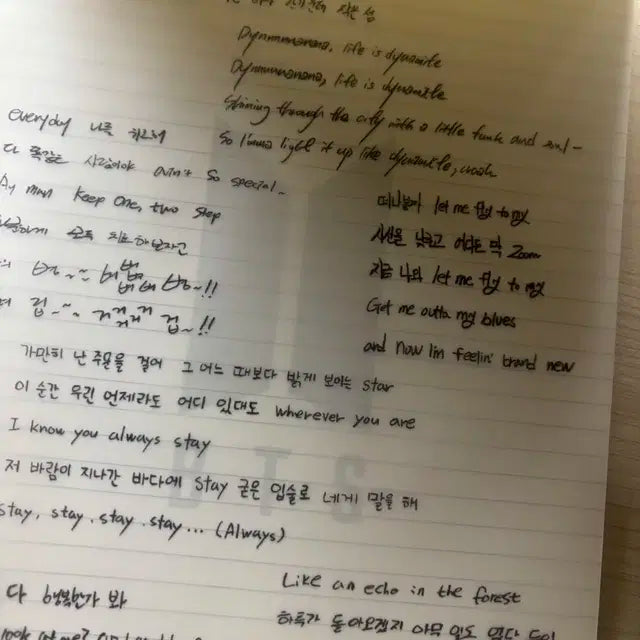 Dynnnnanana, life is dynamite
Dynnnnanana, life is dynamite
Shining through the city with a little funk and soul -
So I'mma light it up like dynamite, woah
everyday 나를
다 똑같은 사람이야 ain't so special
Ay man keep one, two step
떠나볼까 let me fly to my
시선을 낮추고 어디든 막 Zoom
지금 나와 let me fly to my
Got me outta my blues
and now I'm feelin' brand new
가만히 난 주문을 걸어 그 어느 때보다 밝게 보이는 star
이 순간 우린 언제라도 어디 있대도 wherever you are
I know you always stay
저 바람이 지나간 바다에 stay 굳은 입술로 네게 말을 해
Stay, stay, stay, stay... (Always)
BTS
Like an echo in the forest
하루가 돌아오겠지 아무 일도 없단 듯이
다